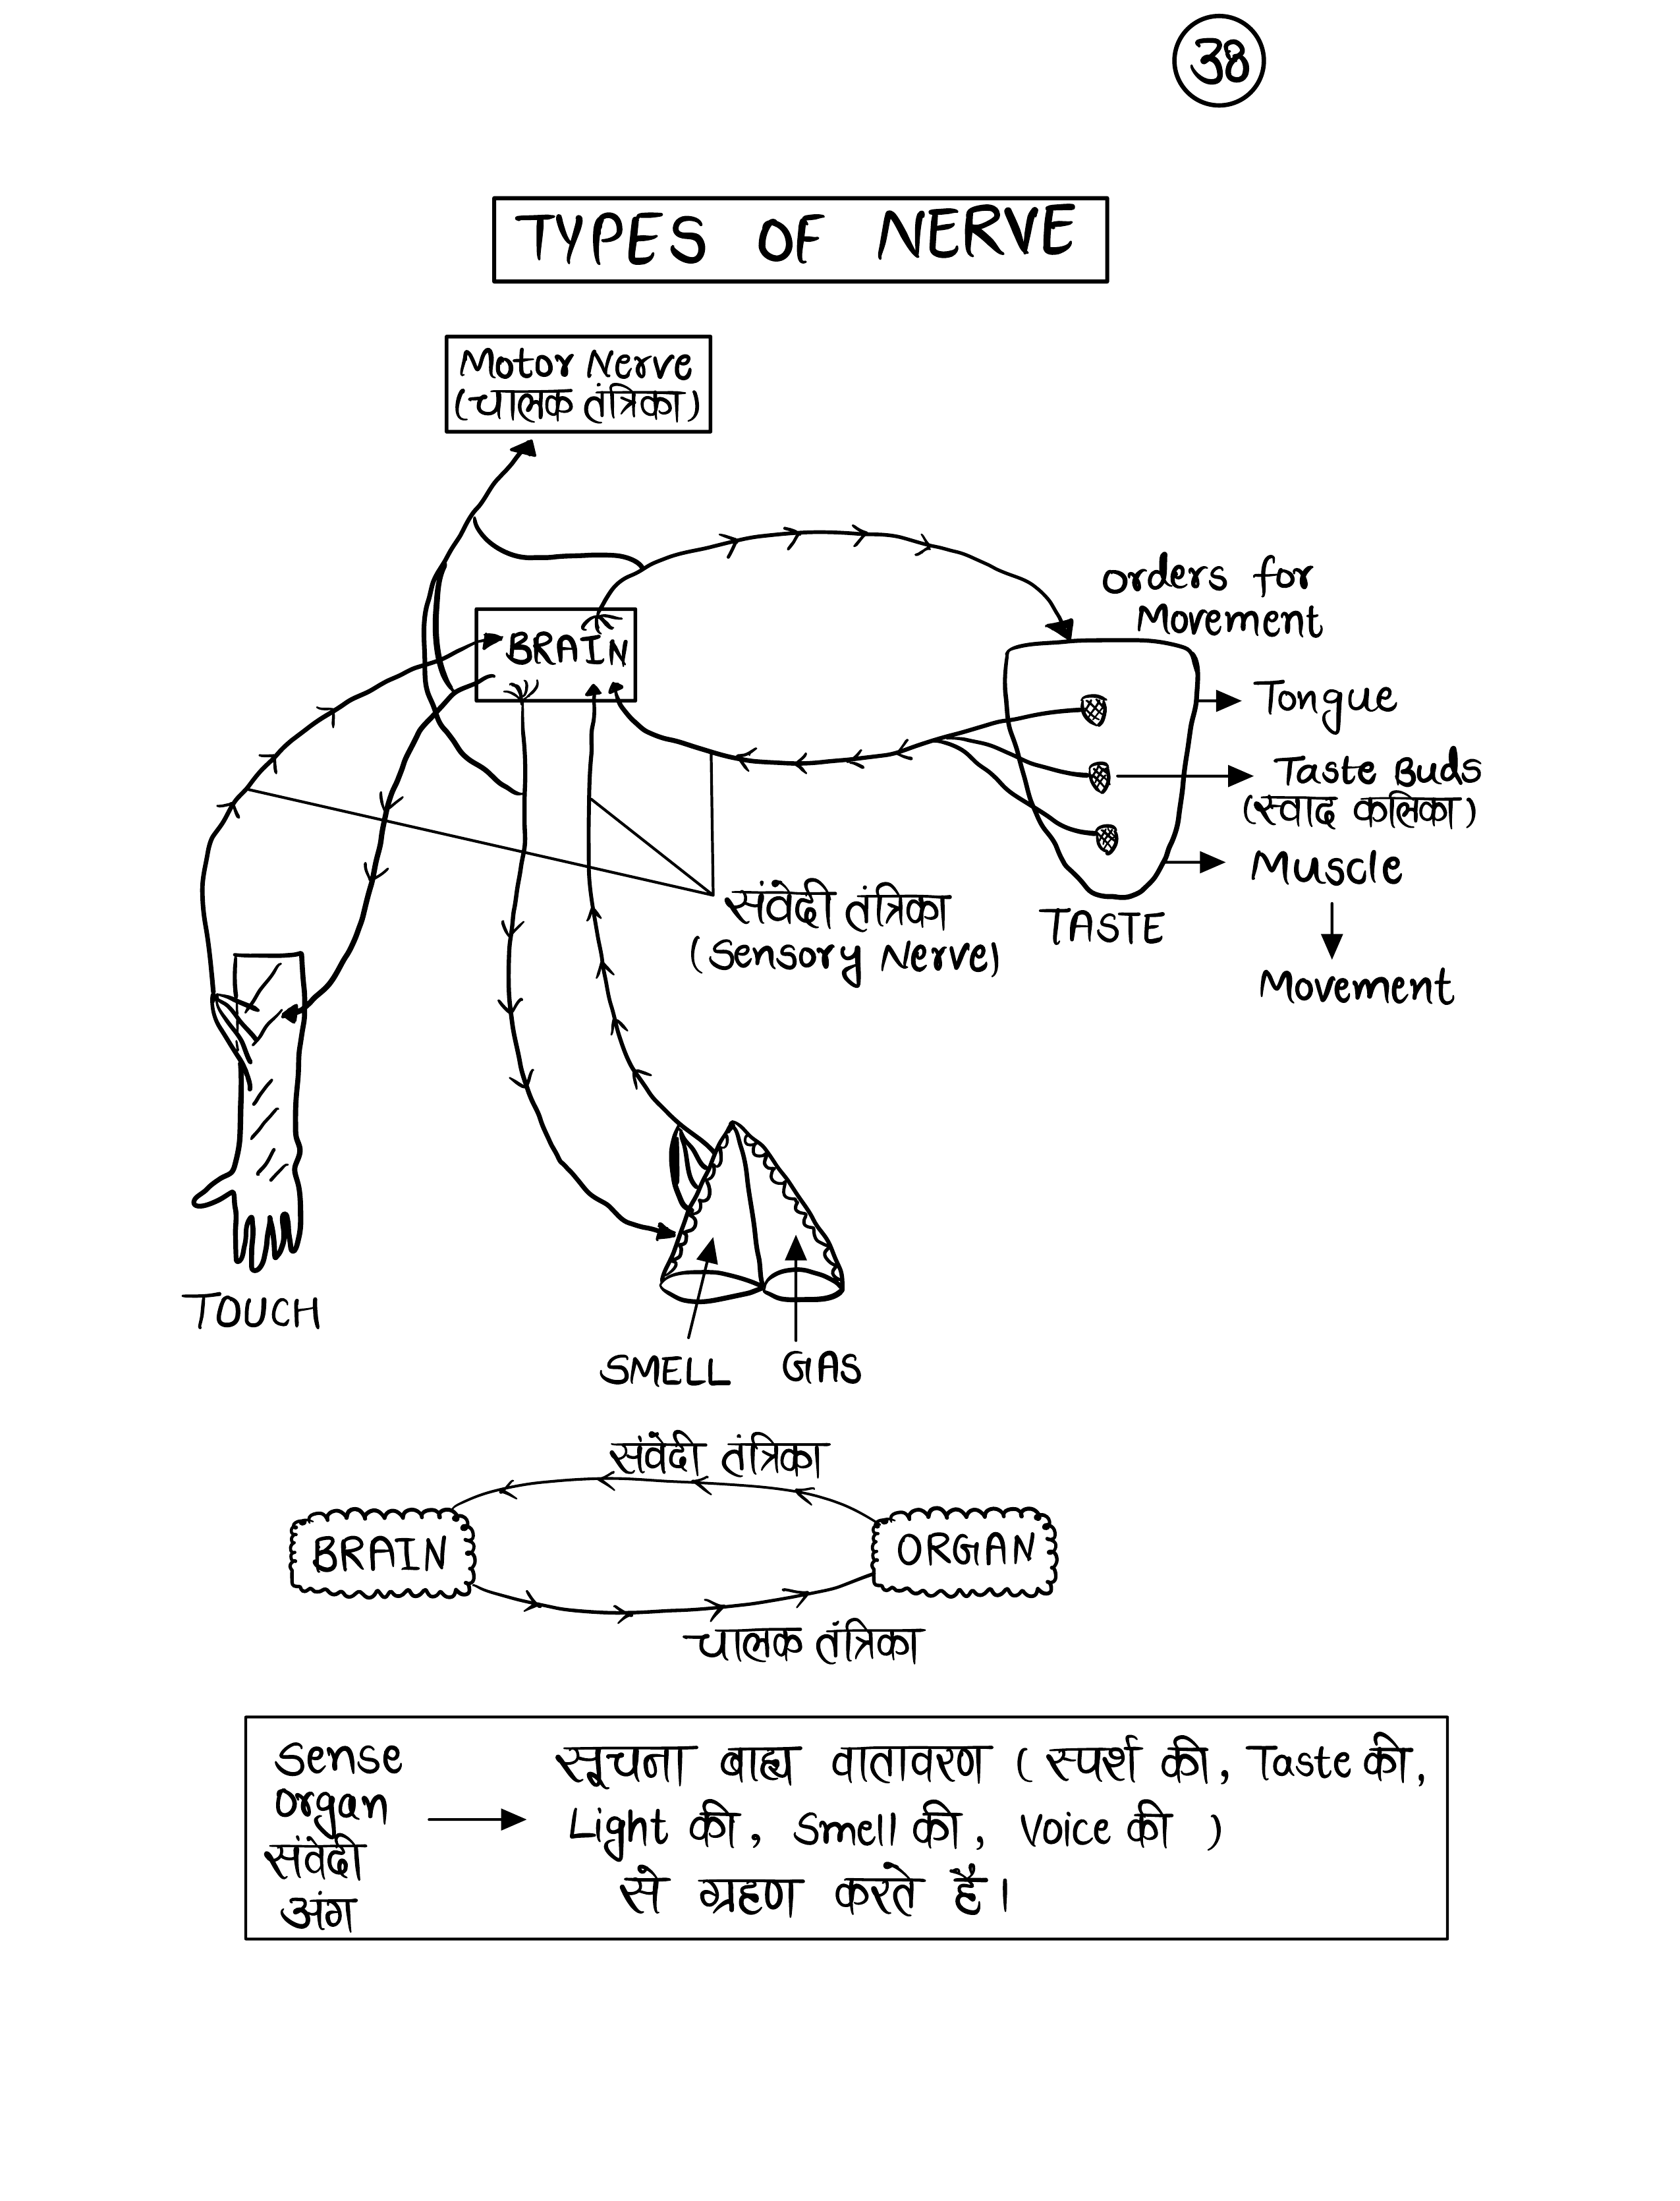 38
TYPES OF NERVE
Motor Nerve
(चालक तंत्रिका)
BRAIN
Orders for
Movement
Tongue
Taste Buds
(स्वाद कलिका)
Muscle
Movement
TASTE
संवेदी तंत्रिका
(Sensory Nerve)
TOUCH
SMELL GAS
संवेदी तंत्रिका
BRAIN
ORGAN
चालक तंत्रिका
Sense
Organ
संवेदी
अंग
सूचना बाह्य वातावरण (स्पर्श की, Taste की,
Light की, Smell की, Voice की )
से ग्रहण करते हैं।